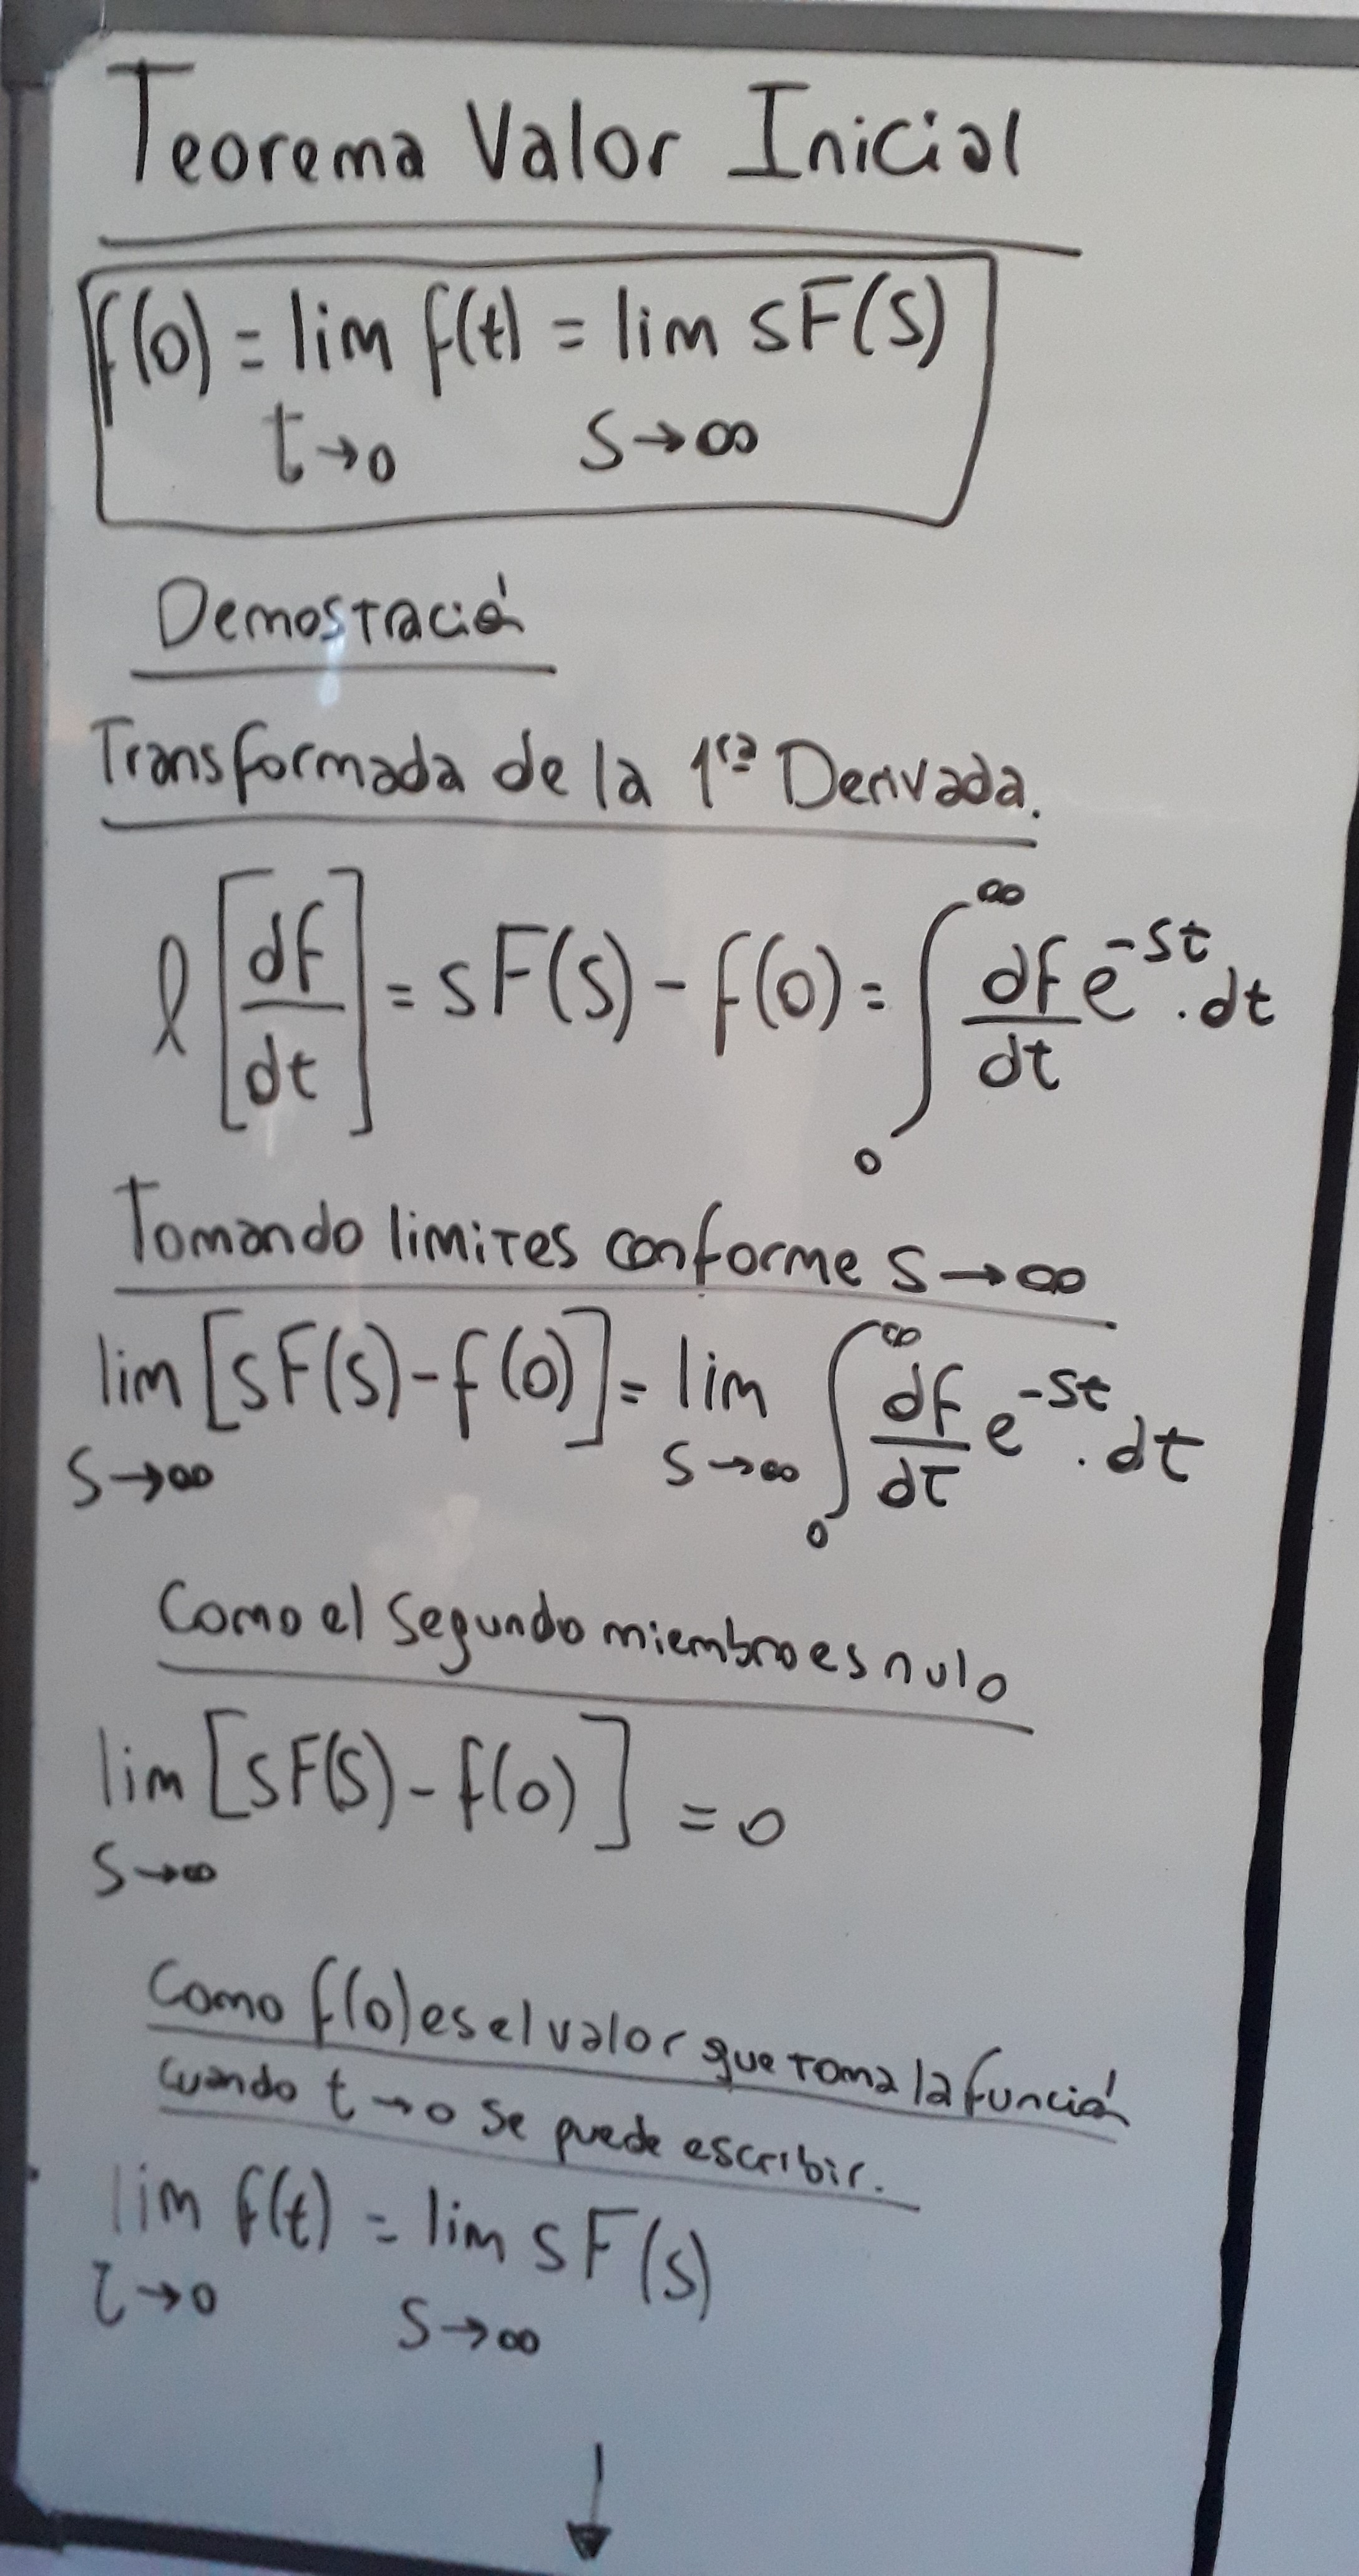 Teorema Valor Inicial
f(0) = lim f(t) = lim sF(s)
t→0 s→∞
Demostración
Transformada de la 1ra Derivada.
ℓ[df/dt] = sF(s) - f(0) = ∫₀^∞ df/dt e^-st . dt
Tomando limites conforme s→∞
lim [sF(s) - f(0)] = lim ∫₀^∞ df/dt e^-st . dt
s→∞ s→∞
Como el segundo miembro es nulo
lim [sF(s) - f(0)] = 0
s→∞
Como f(0) es el valor que toma la función
cuando t→0 se puede escribir.
lim f(t) = lim sF(s)
t→0 s→∞
↓